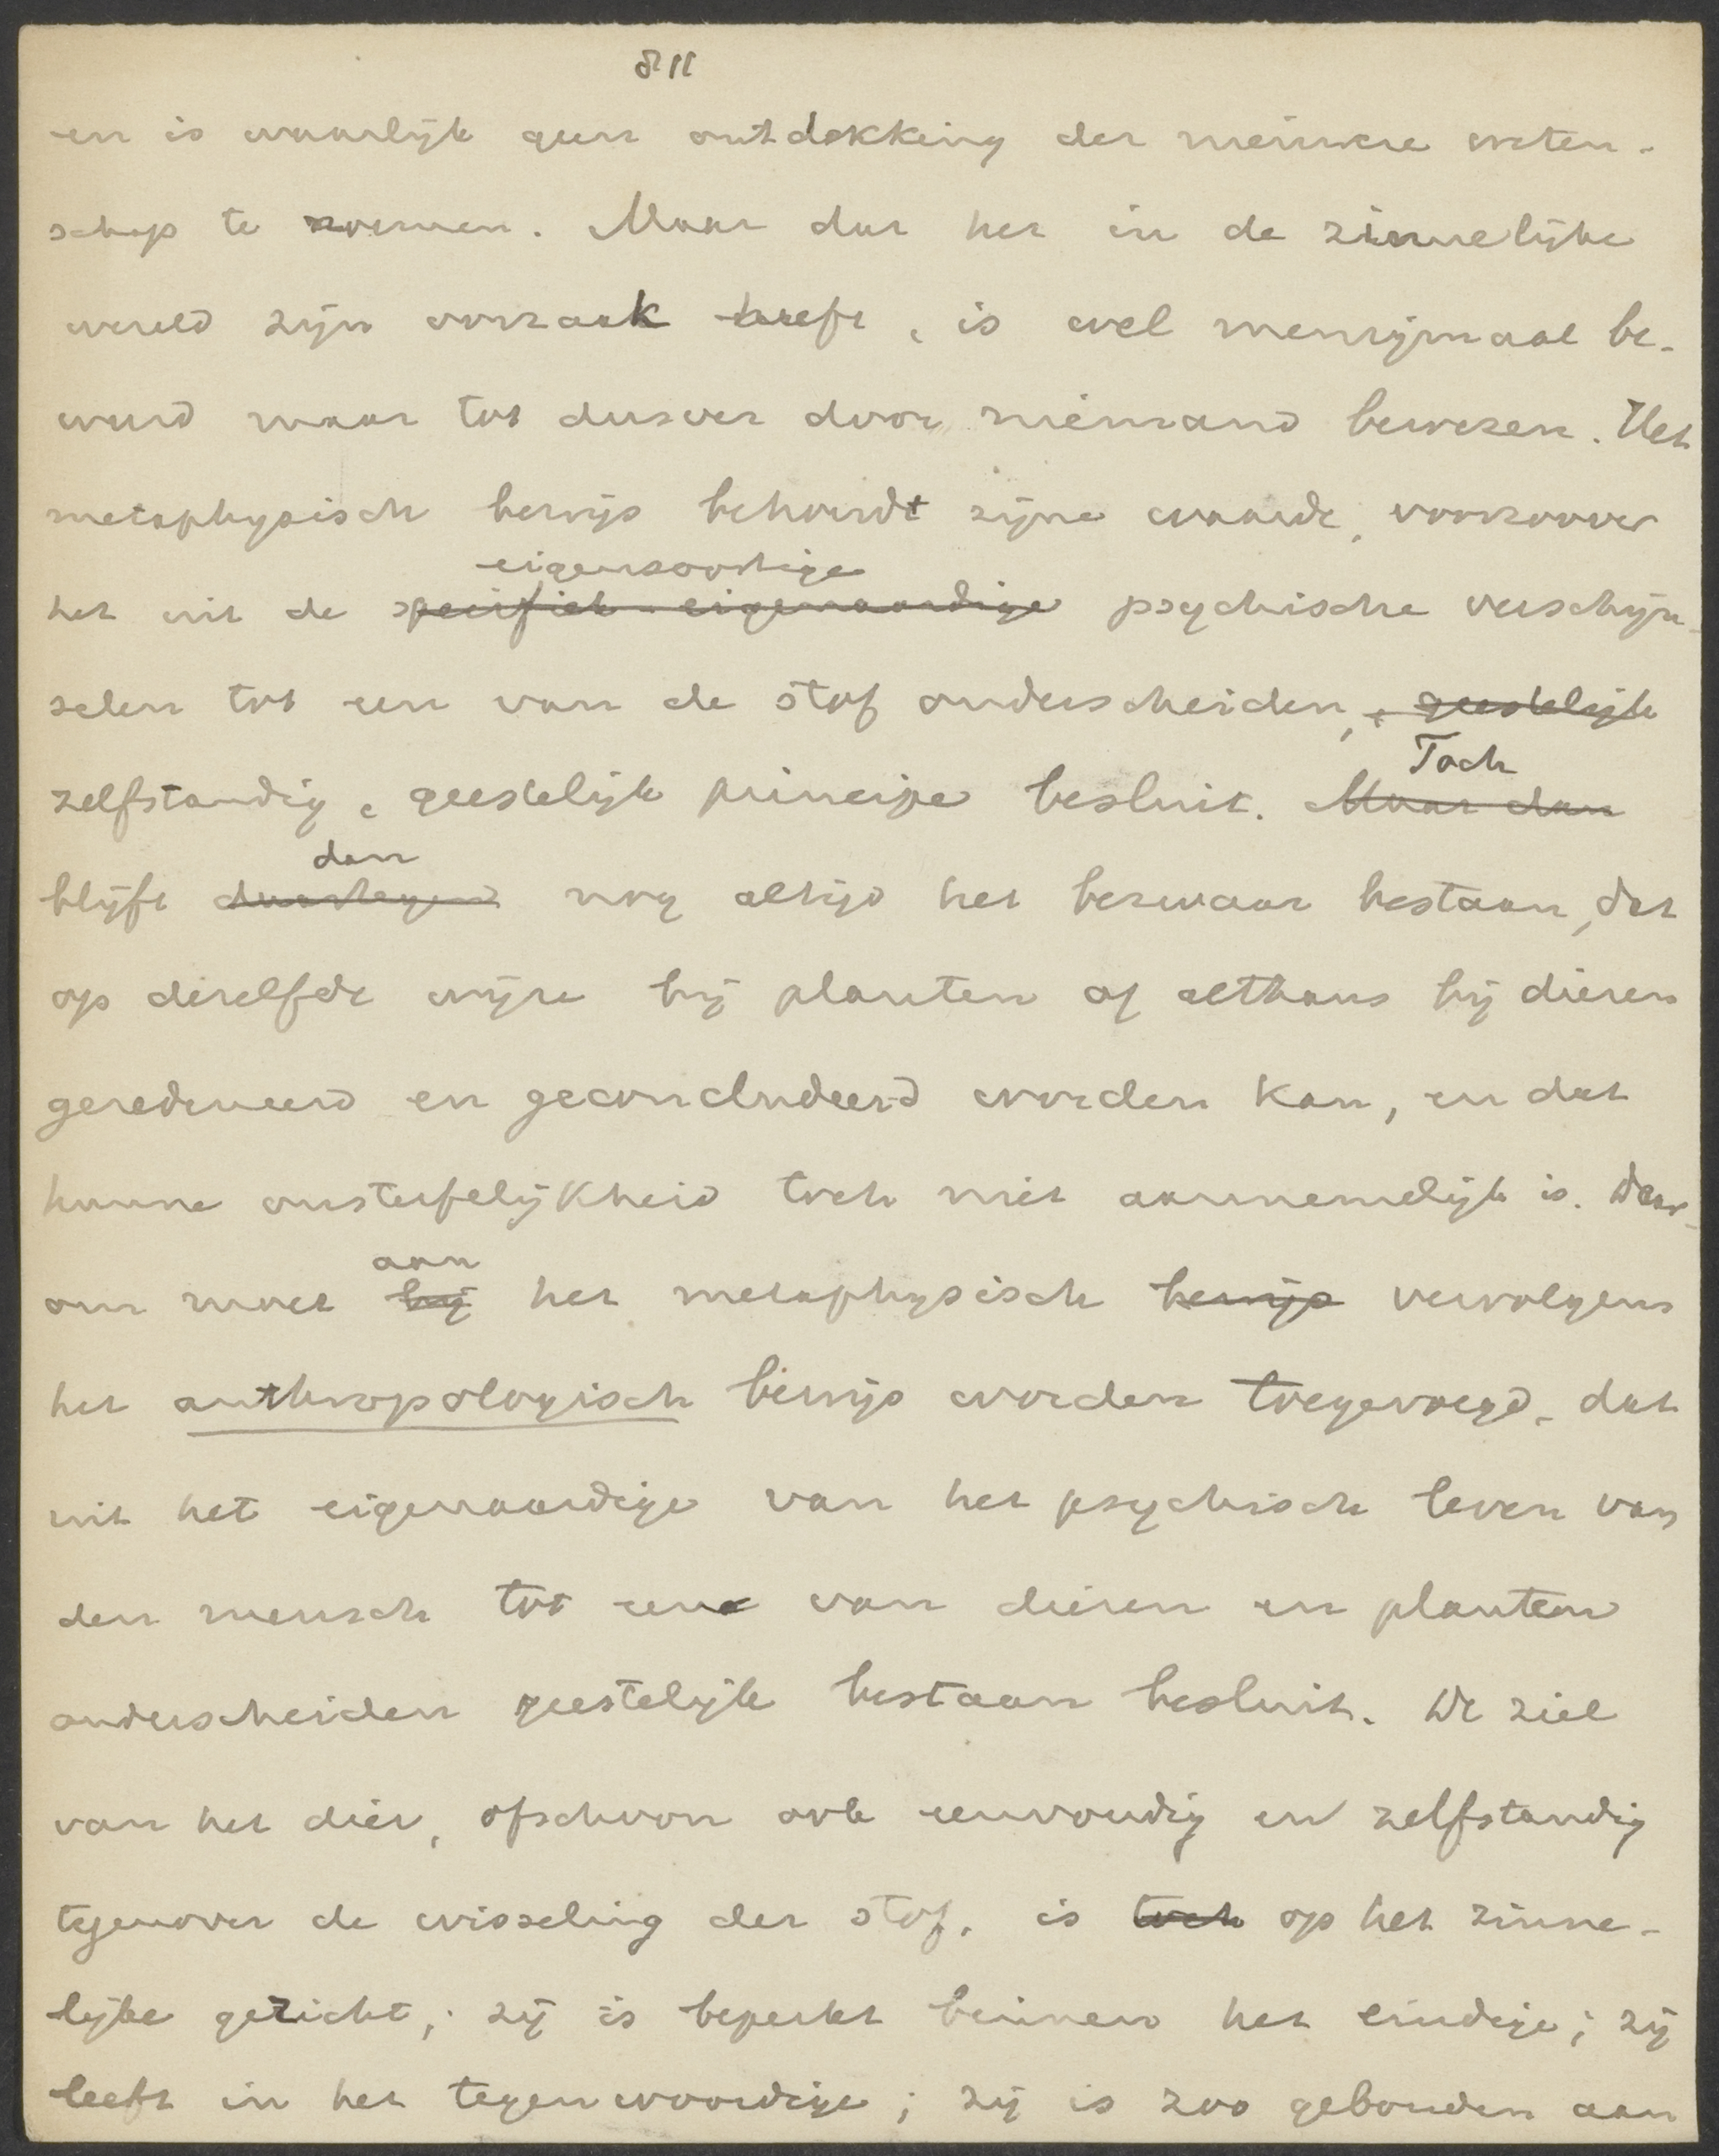 811
en is waarlijk geen ontdekking der nieuwere weten-
schap te noemen. Maar dat het in de zinnelijke
wereld zijn oorzaak heeft, is wel menigmaal be-
weerd maar tot dusver door niemand bewezen. Het
metaphysisch bewijs behoudt zijne waarde, voorzoover
eigensoortige
het uit de specifiek-eigenaardige psychische verschijn-
selen tot een van de stof onderscheiden, geestelijk
Toch
zelfstandig, geestelijk principe besluit. Maar dan
dan
blijft daartegen nog altijd het bezwaar bestaan, dat
op dezelfde wijze bij planten of althans bij dieren
geredeneerd en geconcludeerd worden kan, en dat
hunne onsterfelijkheid toch niet aannemelijk is. Daar-
aan
om moet bij het metaphysisch bewijs vervolgens
het anthropologisch bewijs worden toegevoegd, dat
uit het eigenaardige van het psychisch leven van
den mensch tot een van dieren en planten
onderscheiden geestelijk bestaan besluit. De ziel
van het dier, ofschoon ook eenvoudig en zelfstandig
tegenover de wisseling der stof, is toch op het zinne-
lijke gericht; zij is beperkt binnen het eindige; zij
leeft in het tegenwoordige; zij is zoo gebonden aan